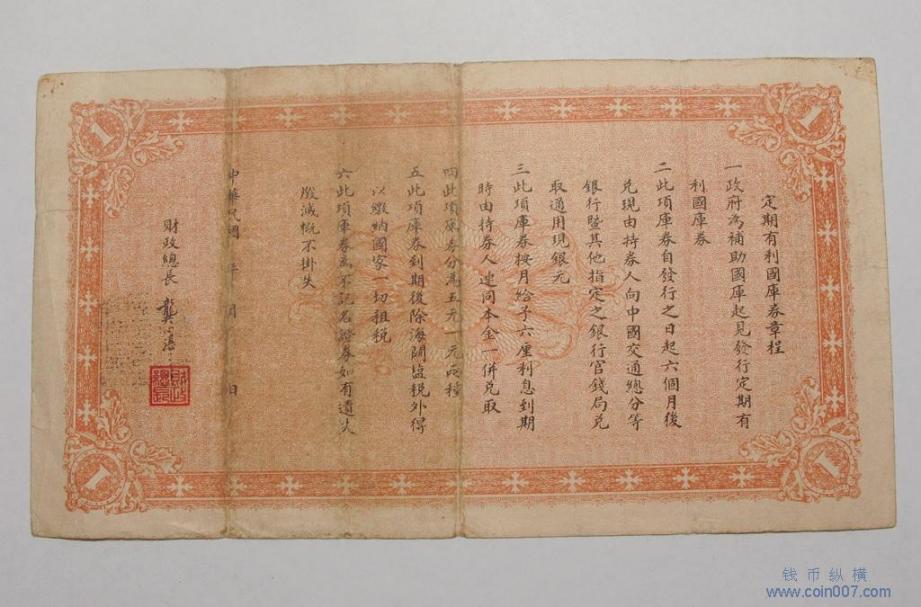 定期有利國庫券章程
一政府為補助國庫起見發行定期有
利國庫券
二此項庫券自發行之日起六個月後
兌現由持券人向中國交通總分等
銀行暨其他指定之銀行官錢局兌
取通用現銀元
三此項庫券按月給予六厘利息到期
時由持券人連同本金一併兌取
四此項庫券分為五元一元兩種
五此項庫券到期後除海關鹽稅外得
以繳納國家一切租稅
六此項庫券為不記名證券如有遺失
燬滅概不掛失
中華民國 年 月 日
財政總長 龔
1
1
1
1
钱币纵横
www.coin007.com